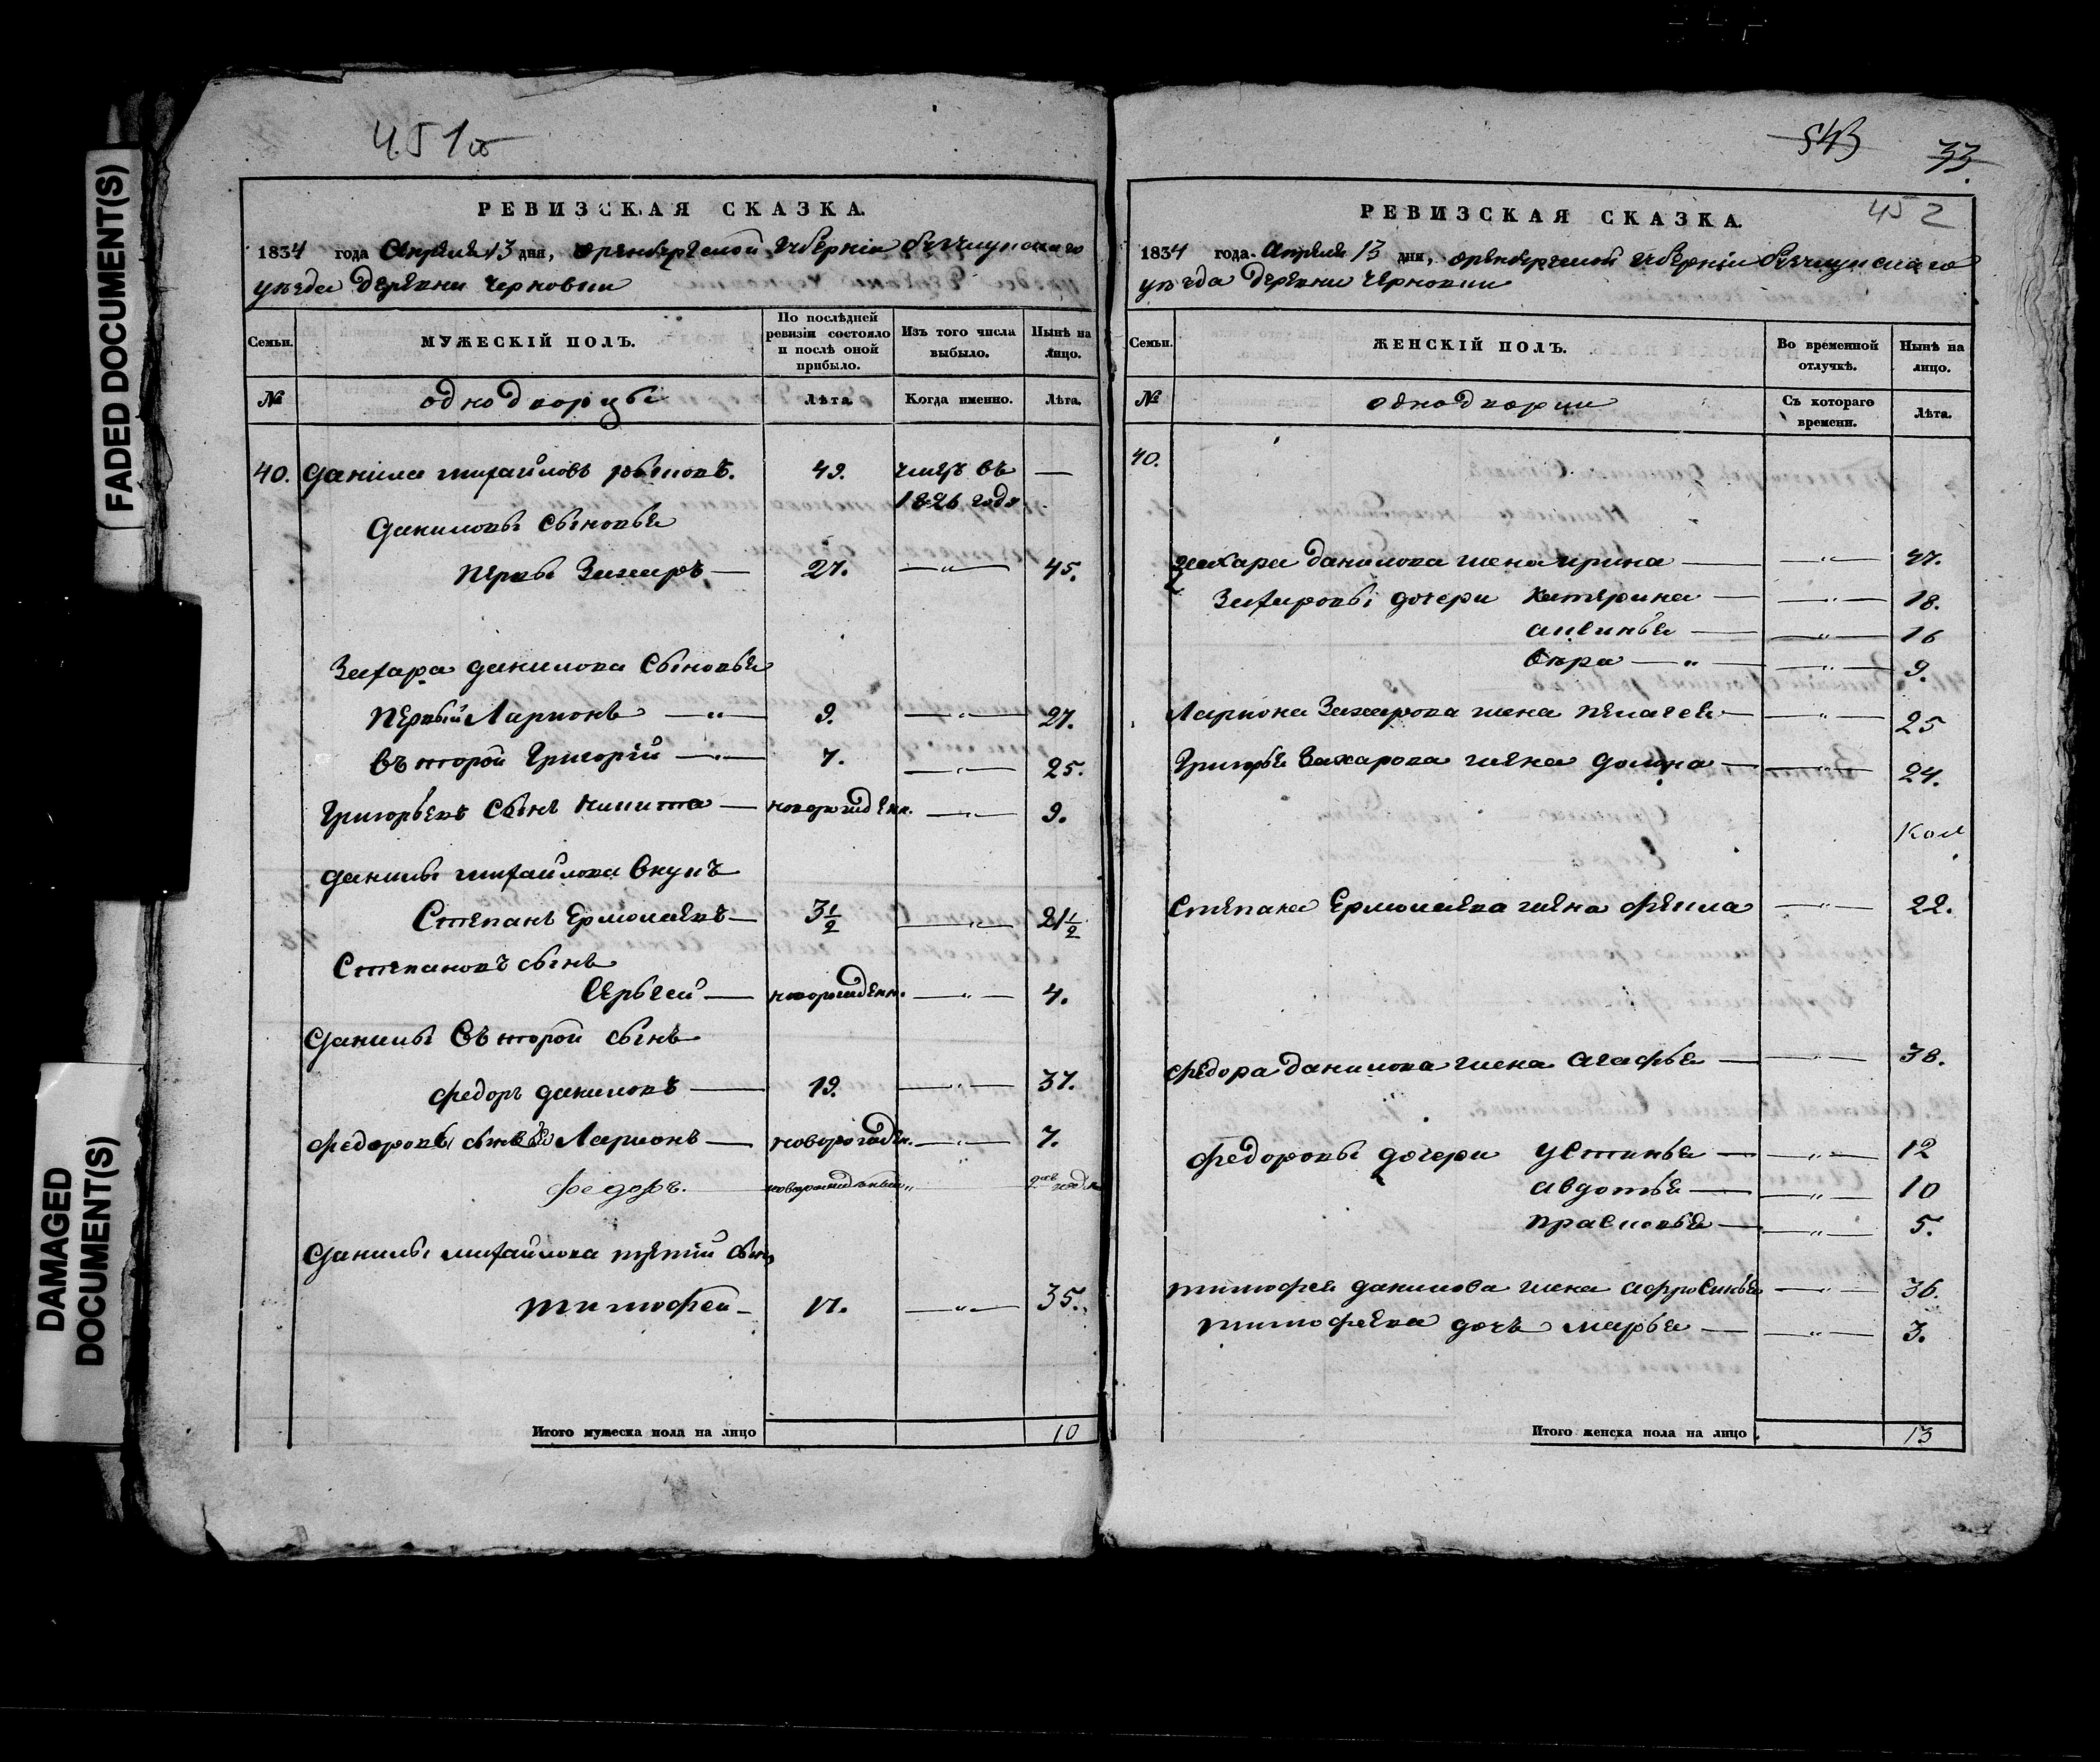 FADED DOCUMENT(S)
DAMAGED
DOCUMENT(S)
451об
РЕВИЗСКАЯ СКАЗКА.
1834 года Апреля 13 дня, оренбергской губернiи
уезда деревни Черновки
Семьи.
МУЖЕСКІЙ ПОЛЪ.
По послѣдней ревизіи состояло и послѣ оной прибыло.
Изъ того числа выбыло.
Нынѣ на лицо.
№
однодворцы
Лѣта.
Когда именно.
Лѣта.
40. Данила михайловъ 49. умеръ въ —
1826 годѣ
Даниловы сыновья
первы Захаръ — 27. —„— 45.
Захара данилова сыновья
первый Ларионъ —„— 9. —„— 27.
въторой Григорiй —„— 7. —„— 25.
Григорьевъ сынъ никита — новорожден. —„— 9.
данилы михайлова внукъ
Степанъ Ермолаевъ — 3½ —„— 21½
Степановъ сынъ
Сергей — новорожден. —„— 4.
Данилы въторой сынъ
Федоръ даниловъ — 19. —„— 37.
Федоровы сынъ Ларионъ — новорожден. —„— 7.
Федоръ. новорожденный „
Данилы михайлова третiй сынъ
тимофей — 17. —„— 35.
Итого мужеска пола на лицо 10
543
33.
452
РЕВИЗСКАЯ СКАЗКА.
1834 года Апреля 13 дня, оренбергской губернiи
уезда деревни Черновки
Семьи.
ЖЕНСКІЙ ПОЛЪ.
Во временной отлучкѣ.
Нынѣ на лицо.
№
однодворки
Съ котораго времени.
Лѣта.
40.
захара данилова жена ирина — —„— 47.
Захаровы дочери катерина — —„— 18.
аксинья — —„— 16
вера —„ —„— 9.
Лариона Захарова жена пелагея — —„— 25
Григорья Захарова жена домна — —„— 24.
Степана Ермолаева жена фекла —„— 22.
Федора данилова жена агафья — —„— 38.
Федоровы дочери устинья — —„— 12
авдотья — —„— 10
прасковья — —„— 5.
тимофея данилова жена афросинья —„— 36.
тимофеева дочь марья — —„— 3.
Итого женска пола на лицо 13